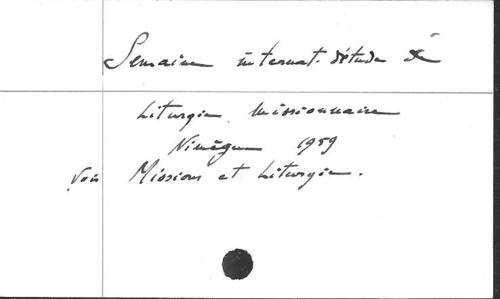 Semaine internat. d'étude de
Liturgie Missionnaire
Nimègue 1959
Voir Missions et Liturgie.